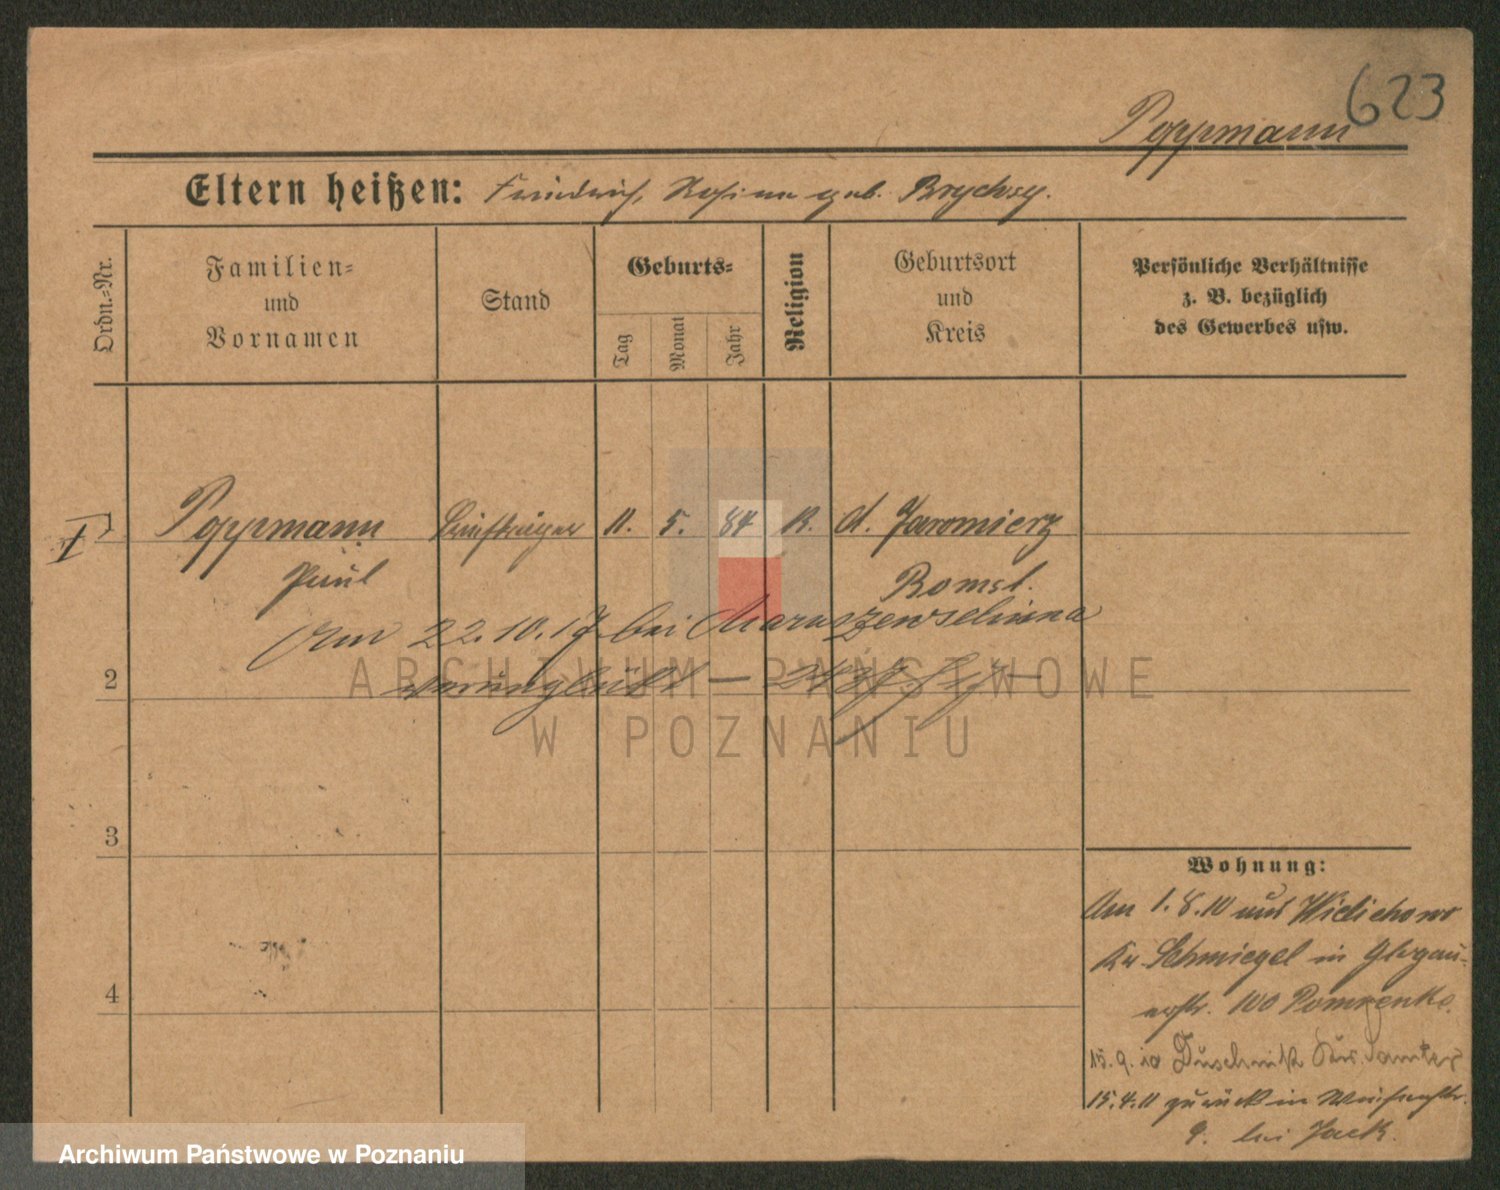 623
Poppmann
Eltern heißen: Friedrich, Rosina geb. Brychsy.
Ordn.-Nr.
Familien-
und
Vornamen
Stand
Geburts-
Tag
Monat
Jahr
Religion
Geburtsort
und
Kreis
Persönliche Verhältnisse
z. B. bezüglich
des Gewerbes usw.
Poppmann 11. 5. 84 K. A. Jaromierz
Paul Bomst.
Am 22.10.17 bei
verunglückt —
2
3
4
Wohnung:
Am 1.8.10 aus Wielichowo
Kr. Schmiegel in Glogau-
erstr. 100 Pomrenke.
15.9.10 Duschnik Krs. Samter
15.4.11 zurück in
9. bei Jack.
ARCHIWUM PAŃSTWOWE
W POZNANIU
Archiwum Państwowe w Poznaniu